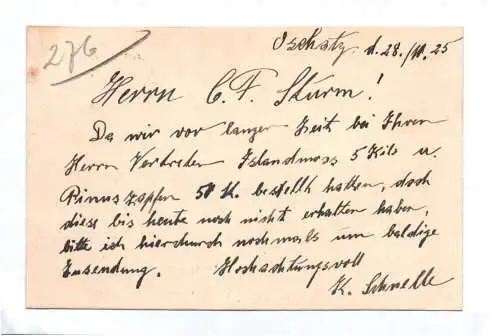 276
Oschatz, d. 28./10. 25
Herrn C. F. Sturm!
Da wir vor langer Zeit bei Ihren
Herrn Vertreter Islandmoss 5 Kilo u.
Pinus zapfen 50 K. bestellt hatten, doch
diese bis heute noch nicht erhalten haben,
bitte ich hierdurch nochmals um baldige
Zusendung. Hochachtungsvoll
K. Schnelle